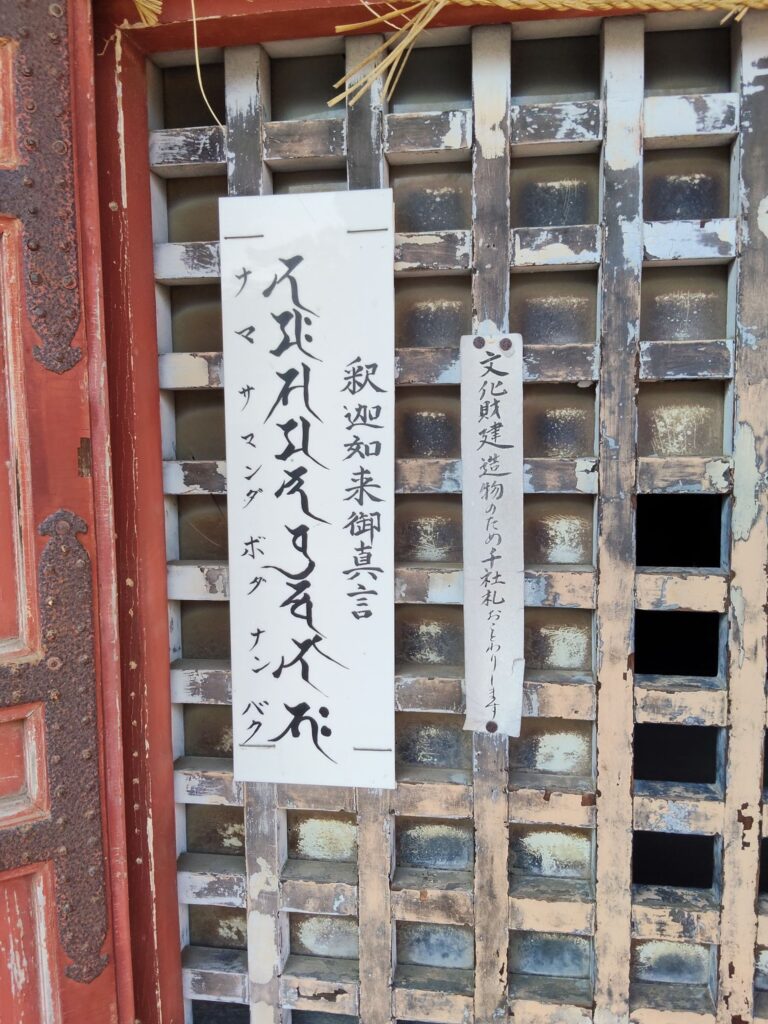 文化財建造物のため千社札おことわりします
釈迦如来御真言
ナマサマンダボダナンバク